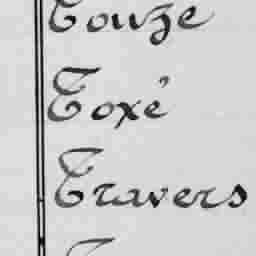 Touze
Toxé
Travers